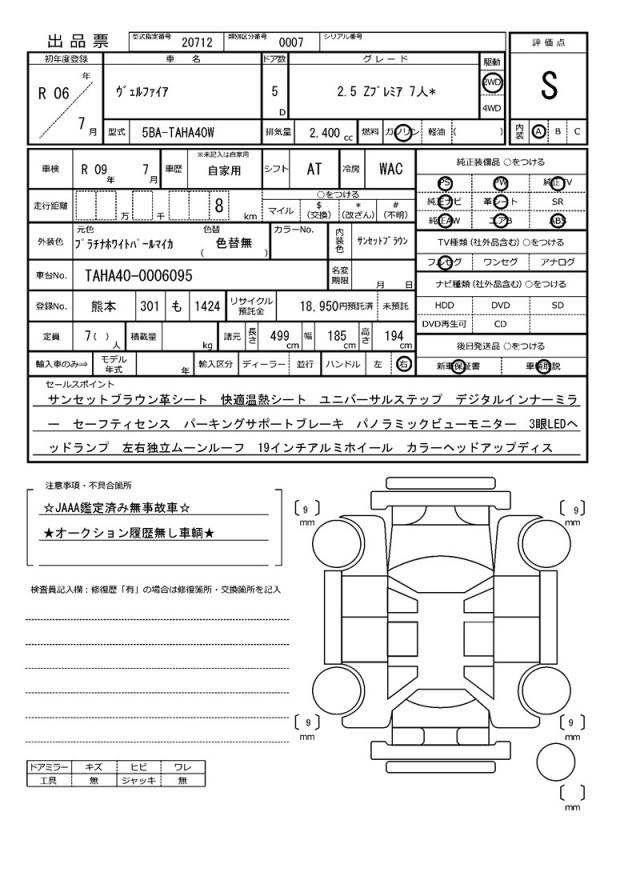 出品票 型式指定番号 20712 類別区分番号 0007 シリアル番号
初年度登録 車 名 ドア数 グレード 駆動 評価点
R 06 年 7 月 ヴェルファイア 5 D 2.5 Zプレミア 7人* 2WD 4WD S
型式 5BA-TAHA40W 排気量 2,400 cc 燃料 ガソリン 軽油 ( ) 内装 A B C
車検 R 09 年 7 月 車歴 ※未記入は自家用 自家用 シフト AT 冷房 WAC 純正装備品 ○をつける
PS PW 純正TV
走行距離 万 千 8 km ○をつける マイル $(交換) *(改ざん) #(不明) 純正ナビ 革シート SR
純正AW エアB ABS
外装色 元色 プラチナホワイトパールマイカ 色替 ( 色替無 ) カラーNo. 内装色 サンセットブラウン TV種類 (社外品含む) ○をつける
フルセグ ワンセグ アナログ
車台No. TAHA40-0006095 名変期限 月 日 ナビ種類 (社外品含む) ○をつける
登録No. 熊本 301 も 1424 リサイクル預託金 18,950円預託済 未預託 HDD DVD SD
DVD再生可 CD
定員 7( ) 人 積載量 kg 諸元 長さ 499 cm 幅 185 cm 高さ 194 cm 後日発送品 ○をつける
輸入車のみ⇒ モデル年式 年 輸入区分 ディーラー 並行 ハンドル 左 右 新車保証書 車輌取説
セールスポイント
サンセットブラウン革シート 快適温熱シート ユニバーサルステップ デジタルインナーミラ
ー セーフティセンス パーキングサポートブレーキ パノラミックビューモニター 3眼LEDヘ
ッドランプ 左右独立ムーンルーフ 19インチアルミホイール カラーヘッドアップディス
注意事項・不具合箇所
☆JAAA鑑定済み無事故車☆
★オークション履歴無し車輌★
[ 9 ] mm [ 9 ] mm
検査員記入欄：修復歴「有」の場合は修復箇所・交換箇所を記入
[ 9 ] mm [ 9 ] mm
ドアミラー キズ ヒビ ワレ
工具 無 ジャッキ 無
[ ] mm